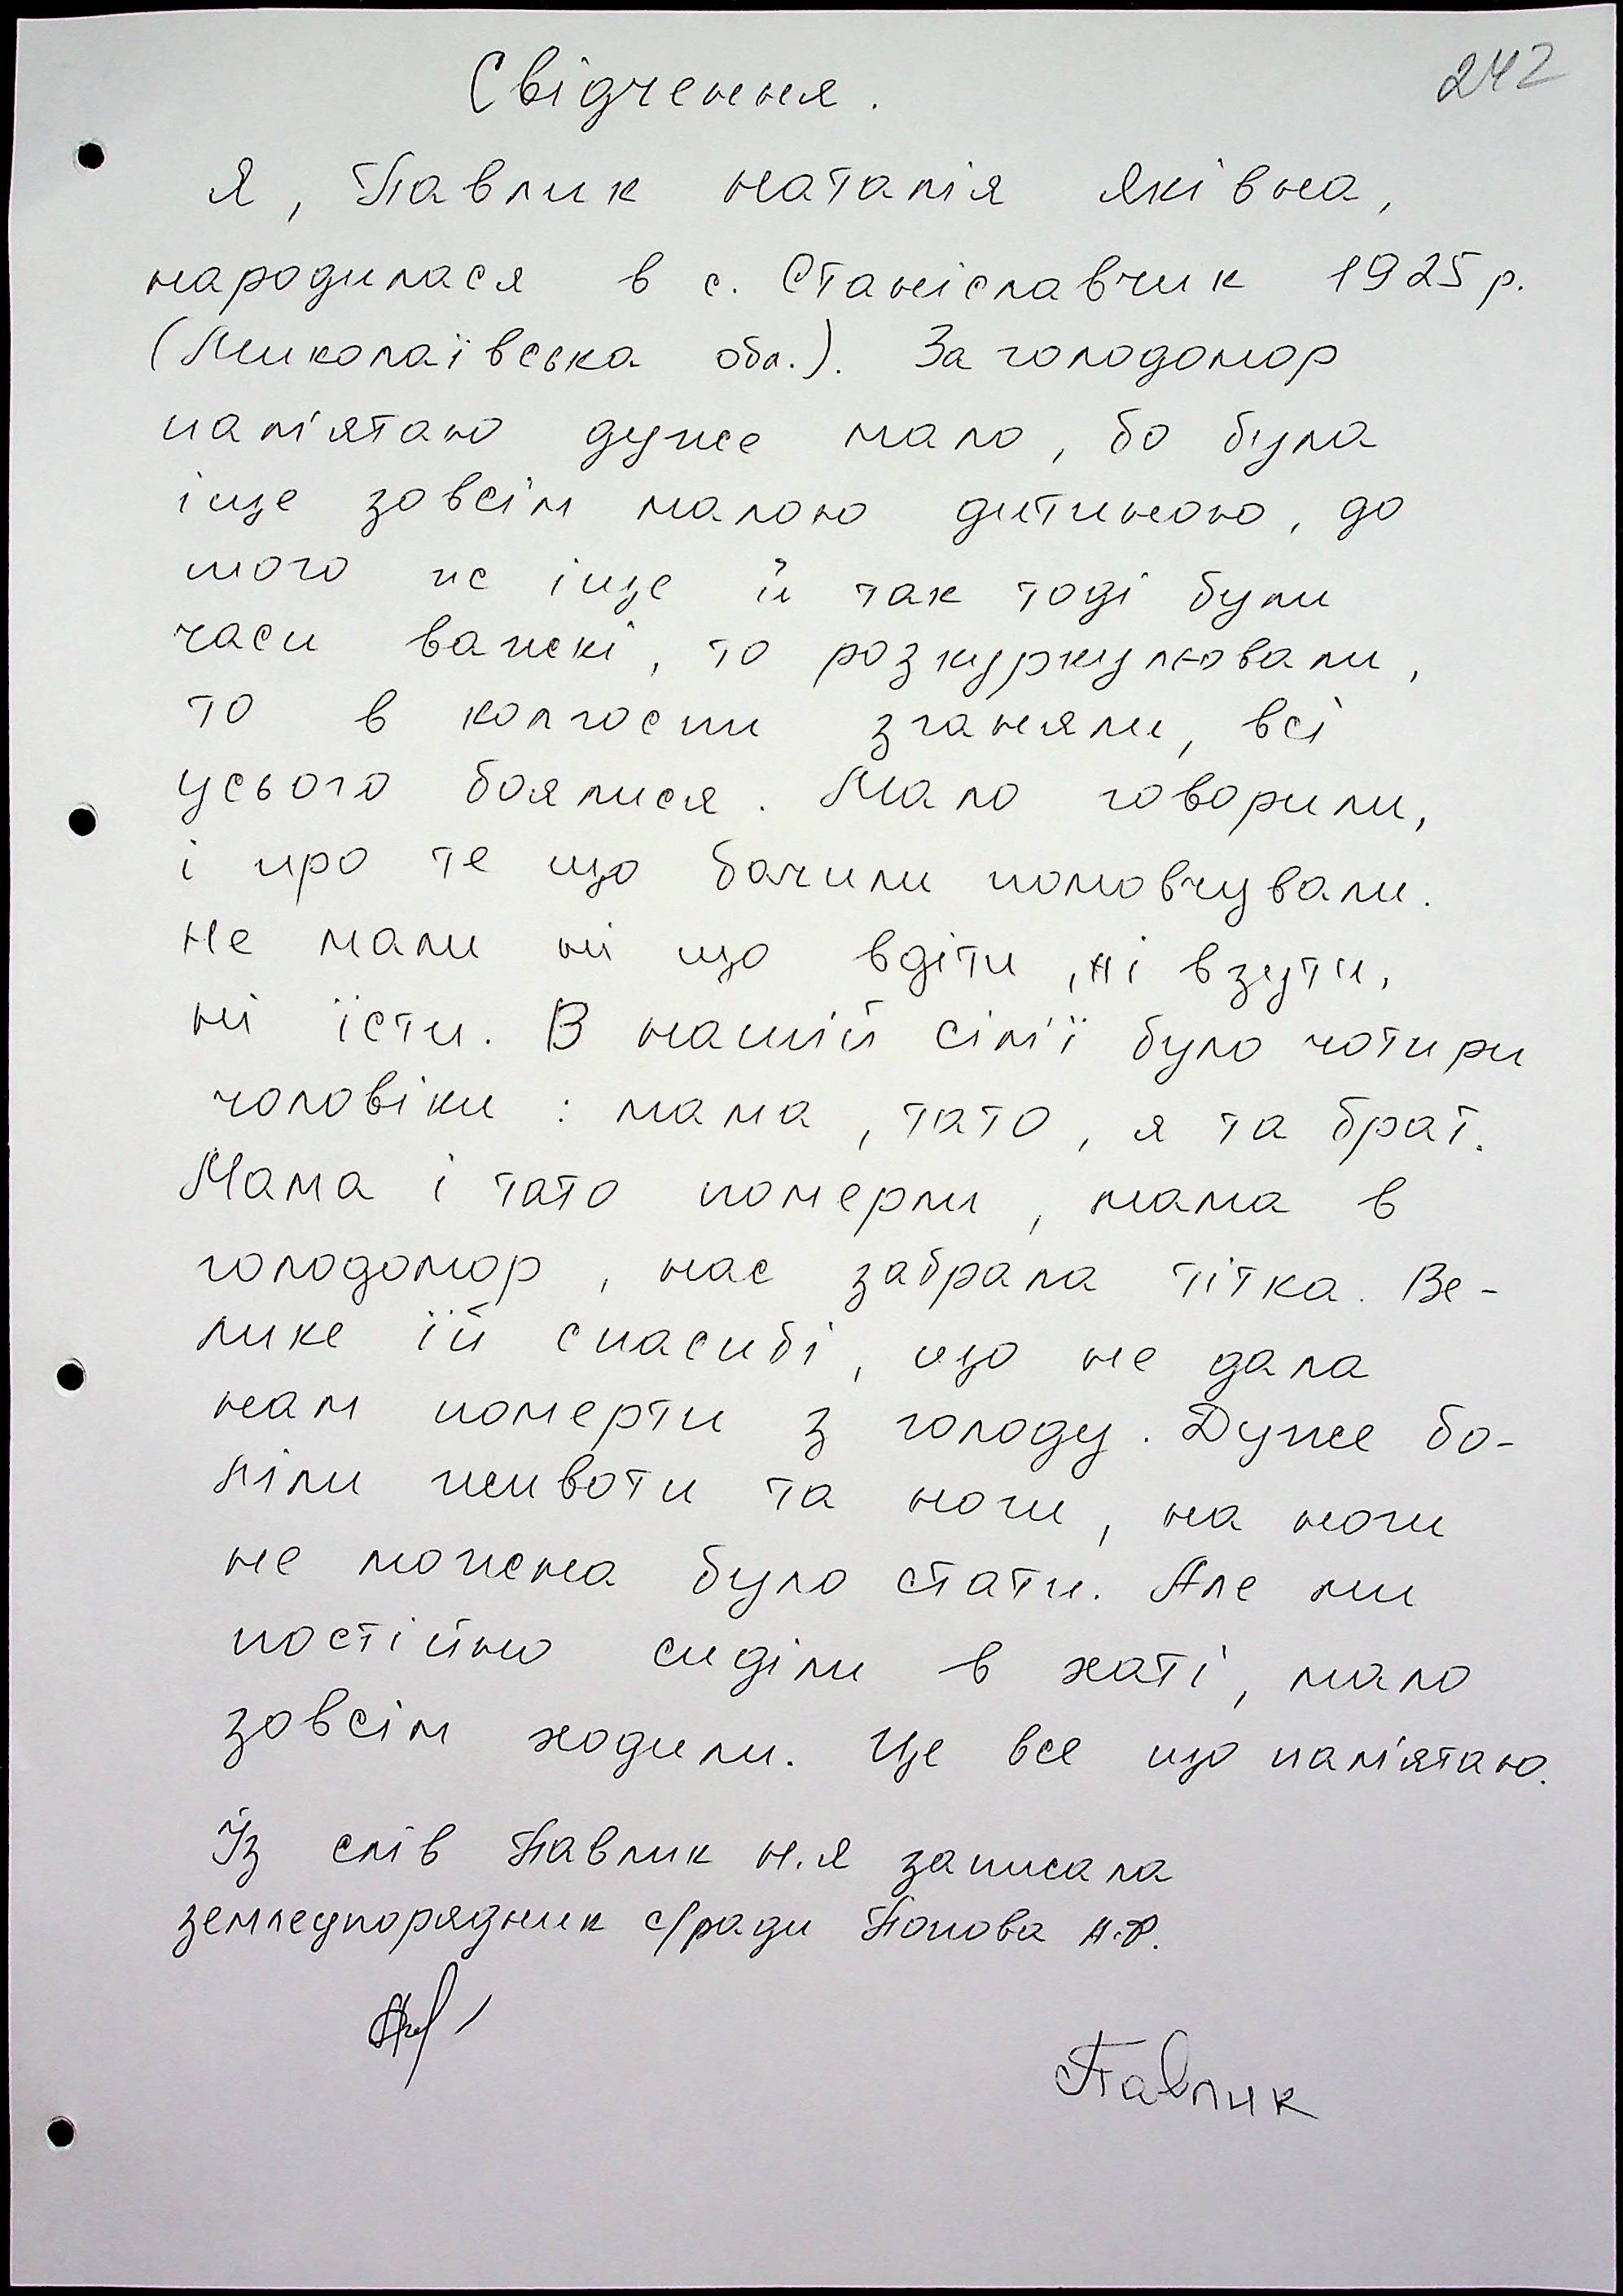 242
Свідчення.
Я, Павлик Наталія Яківна,
народилася в с. Станіславчик 1925 р.
(Миколаївська обл.). За голодомор
пам'ятаю дуже мало, бо була
іще зовсім малою дитиною, до
того же іще й так тоді були
часи важкі, то розкуркулювали,
то в колгоспи зганяли, всі
усього боялися. Мало говорили,
і про те що бачили помовчували.
Не мали ні що вдіти, ні взути,
ні їсти. В нашій сім'ї було чотири
чоловіки: мама, тато, я та брат.
Мама і тато померли, мама в
голодомор, нас забрала тітка. Ве-
лике їй спасибі, що не дала
нам померти з голоду. Дуже бо-
ліли животи та ноги, на ноги
не можна було стати. Але ми
постійно сиділи в хаті, мало
зовсім ходили. Це все що пам'ятаю.
Із слів Павлик Н.Я записала
землеупорядник с/ради Попова Н.Ф.
Павлик